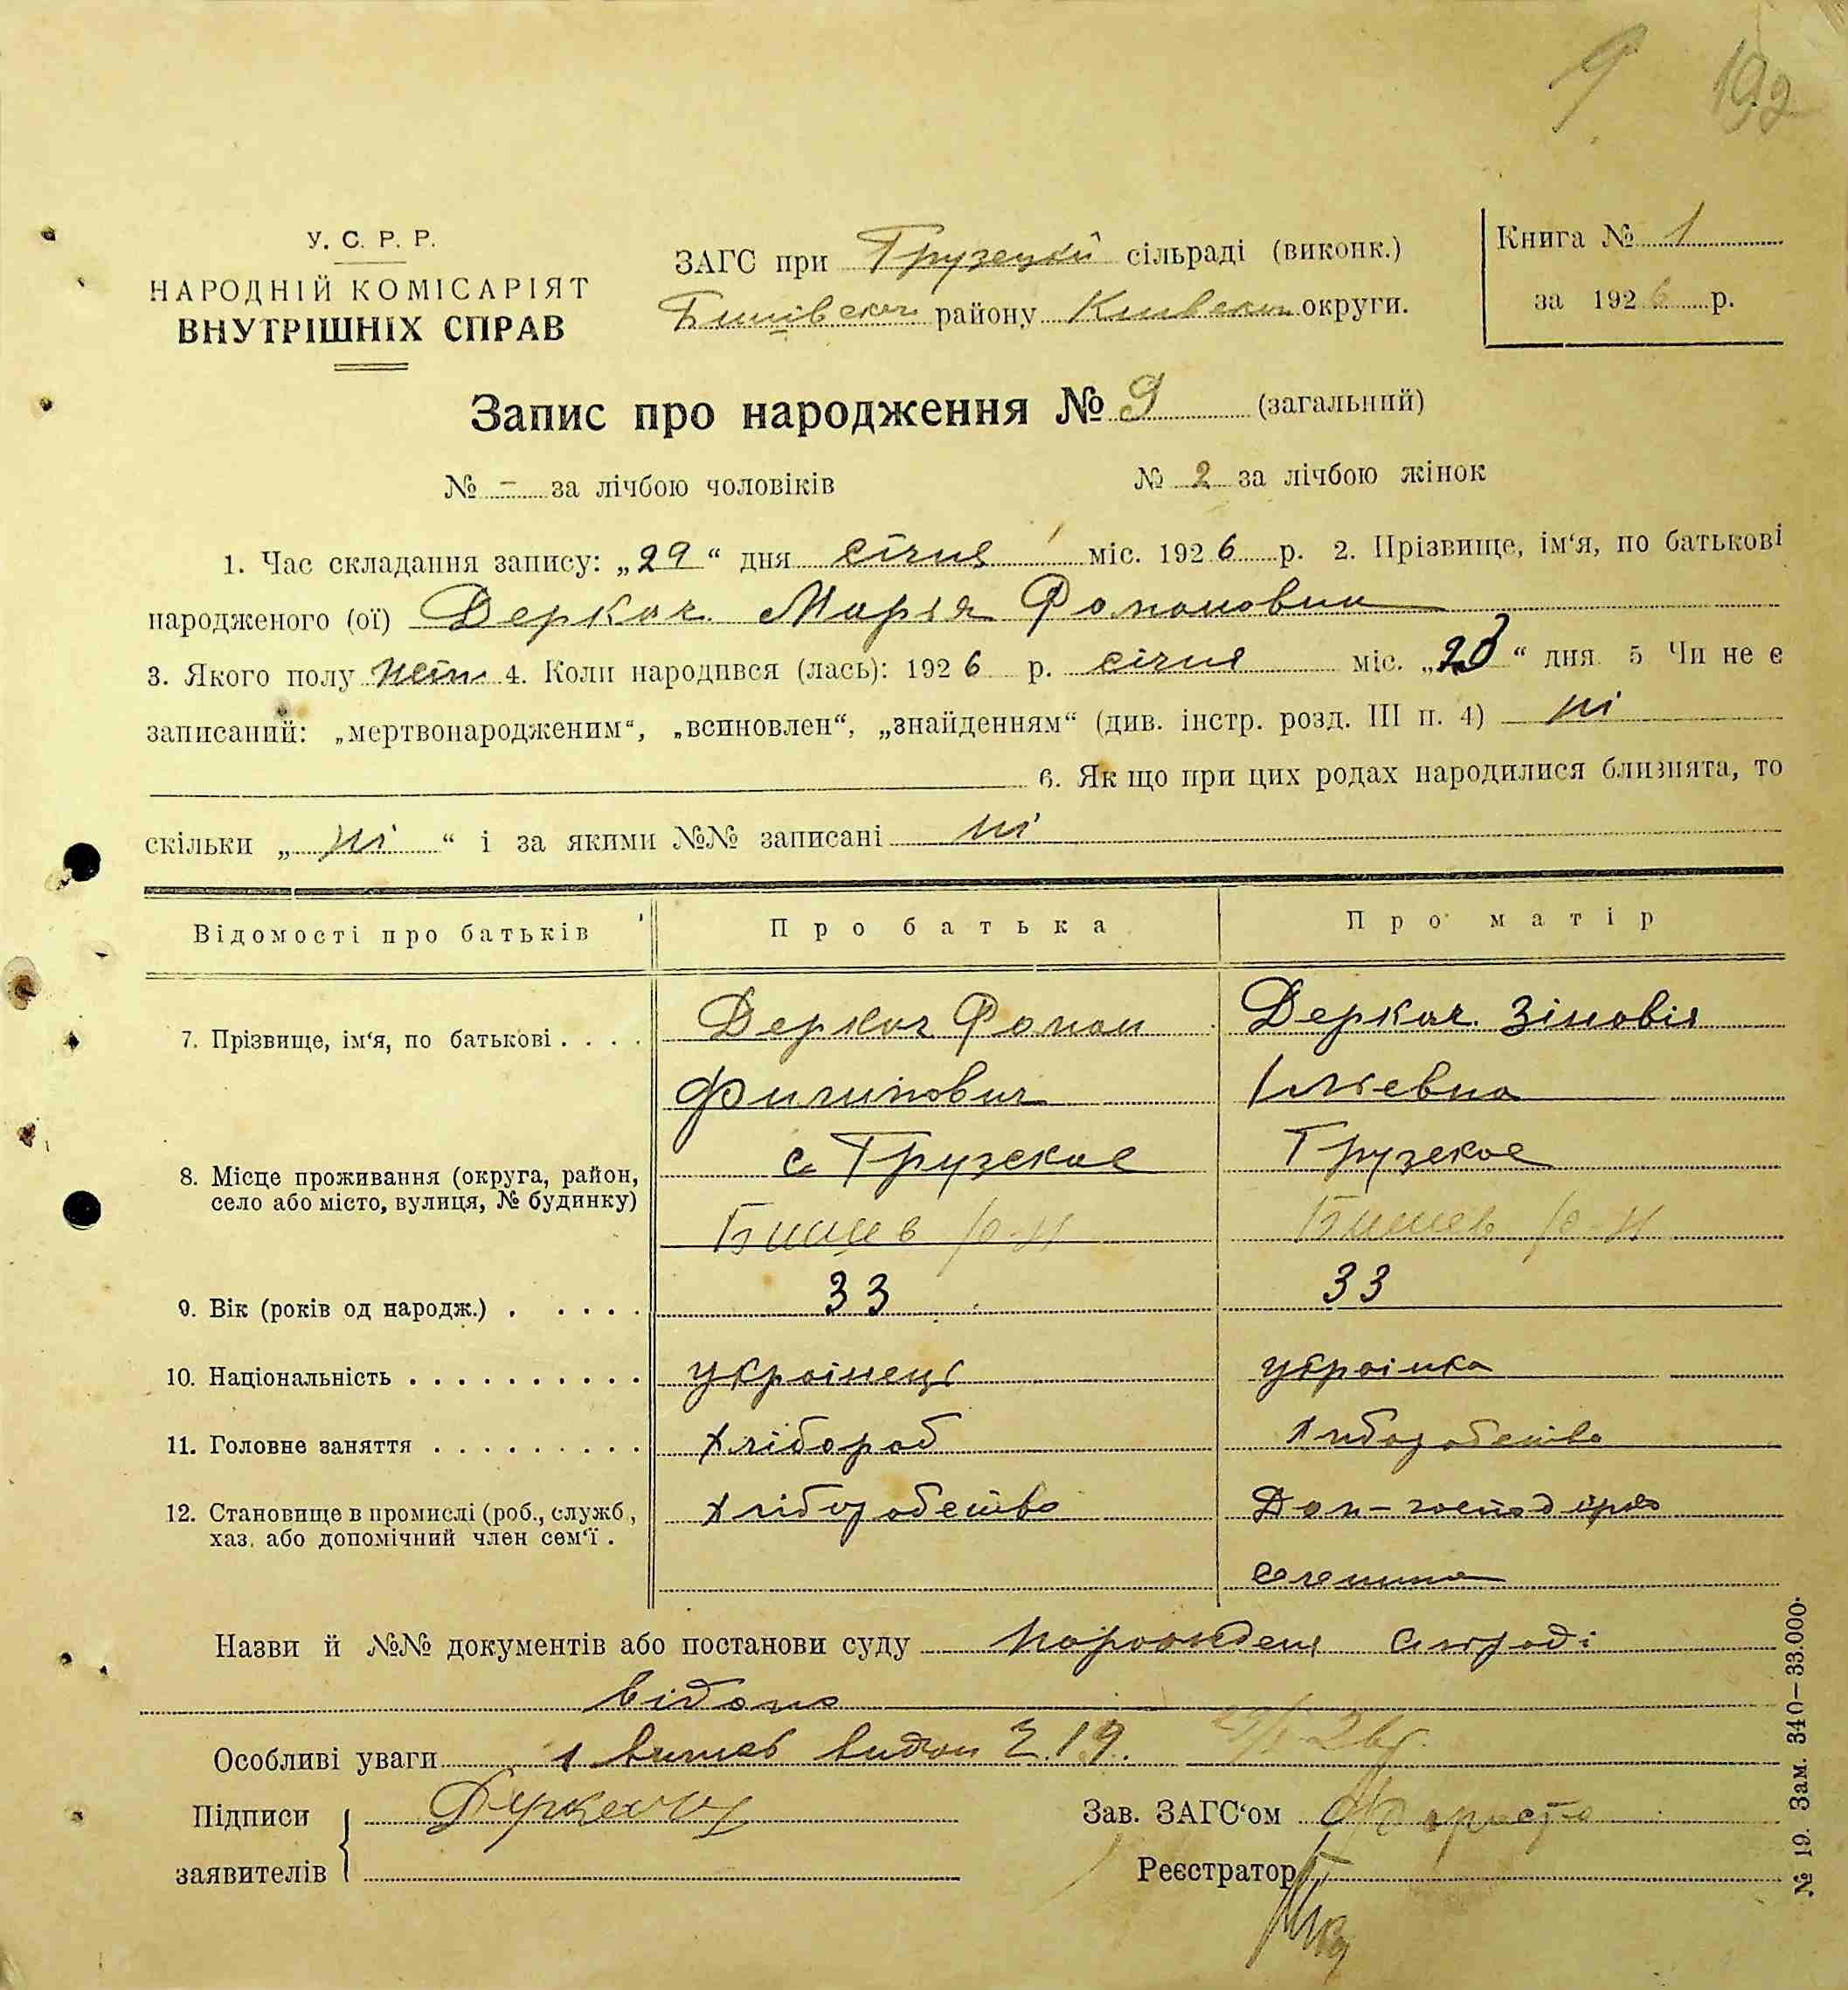 9 192
У. С. Р. Р.
НАРОДНІЙ КОМІСАРІЯТ
ВНУТРІШНІХ СПРАВ
ЗАГС при Грузецкій сільраді (виконк.)
району округи.
Книга № 1
за 1926 р.
Запис про народження № 9 (загальний)
№ - за лічбою чоловіків № 2 за лічбою жінок
1. Час складання запису: „29“ дня січня міс. 1926 р. 2. Прізвище, ім‘я, по батькові
народженого (ої) Деркач Марія
3. Якого полу жін 4. Коли народився (лась): 1926 р. січня міс. „ “ дня 5 Чи не є
записаний: „мертвонародженим“, „всиновлен“, „знайденням“ (див. інстр. розд. III п. 4) ні
6. Як що при цих родах народилися близнята, то
скільки „ ні “ і за якими №№ записані ні
Відомості про батьків Про батька Про матір
7. Прізвище, ім‘я, по батькові . . . . Деркач Деркач Зіновія
Филипович
8. Місце проживання (округа, район,
село або місто, вулиця, № будинку)
с. Грузское Грузское
Бишев р-н Бишев р-н
9. Вік (років од народж.) . . . . . 33 33
10. Національність . . . . . . . . . . українець українка
11. Головне заняття . . . . . . . . . хлібороб хліборобство
12. Становище в промислі (роб., служб,
хаз. або допомічний член сем‘ї .
хліборобство
Назви й №№ документів або постанови суду
відомо
Особливі уваги
Підписи
заявителів
Зав. ЗАГС‘ом
Реєстратор
№ 19. Зам. 340—33.000.